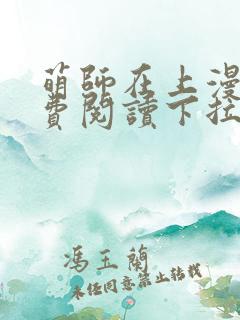 萌師在上漫
費閱讀下拉
馮玉蘭
未經同意禁止轉載